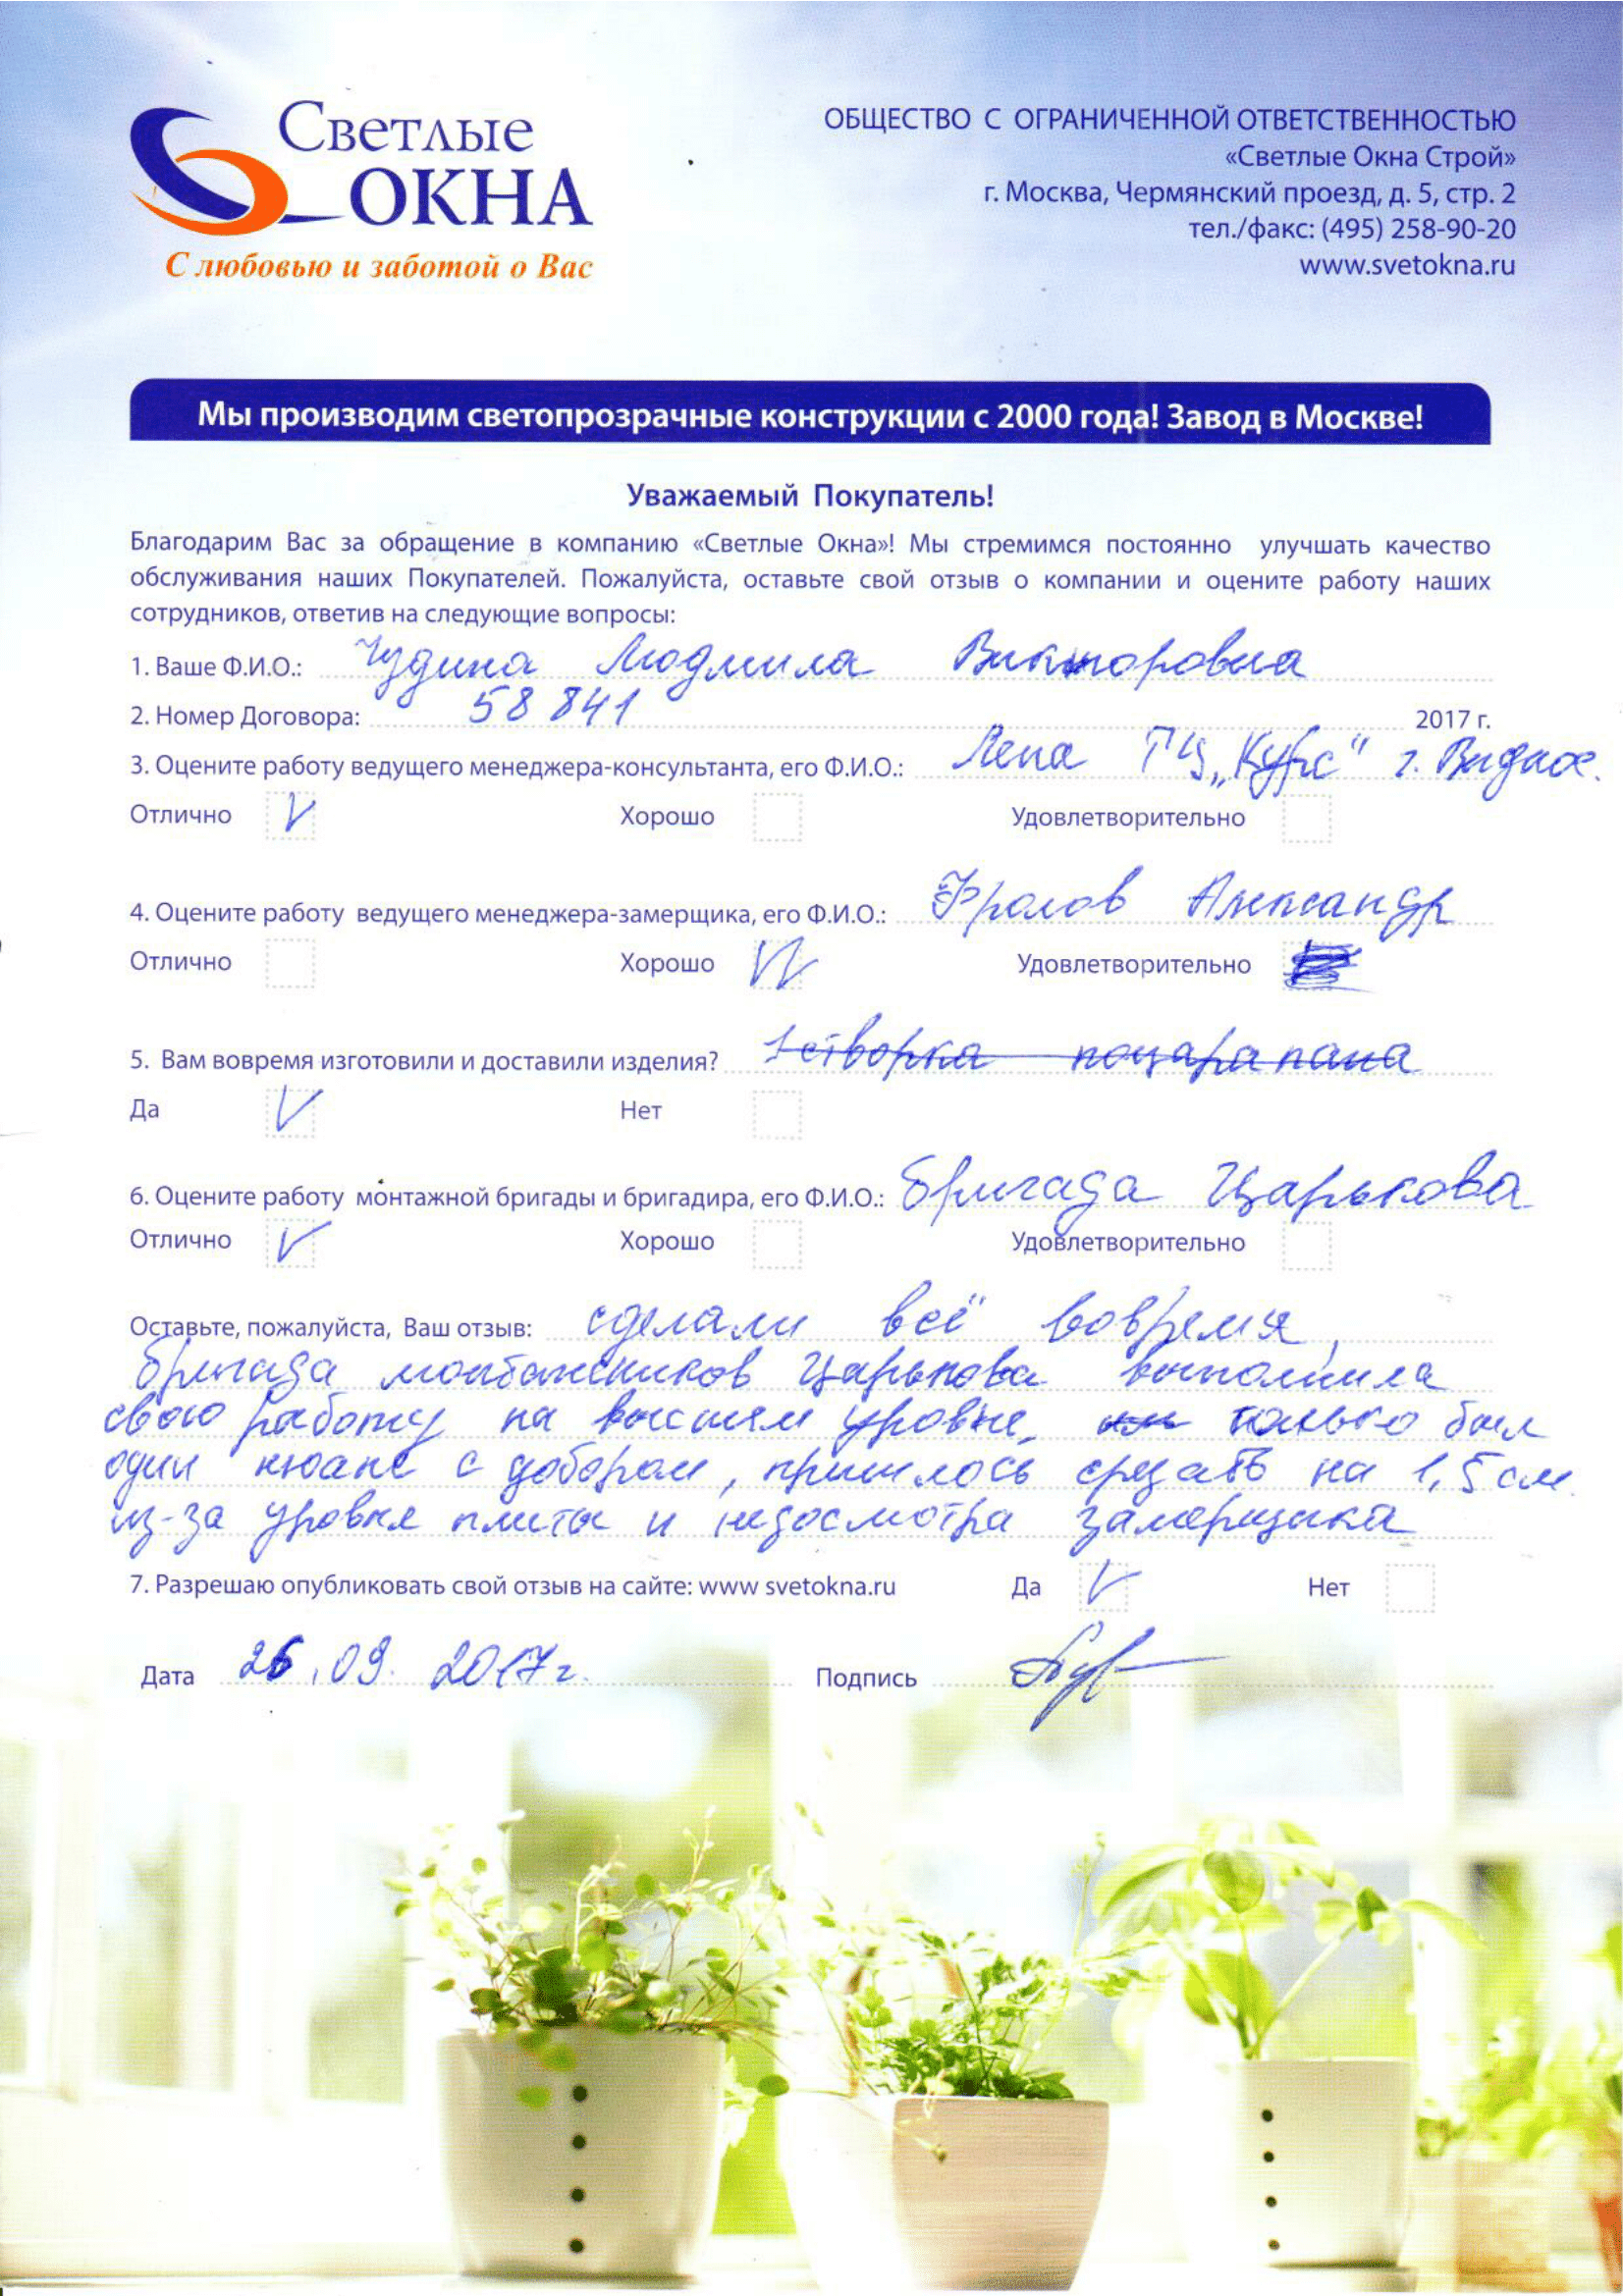 Светлые
ОКНА
С любовью и заботой о Вас
ОБЩЕСТВО С ОГРАНИЧЕННОЙ ОТВЕТСТВЕННОСТЬЮ
«Светлые Окна Строй»
г. Москва, Чермянский проезд, д. 5, стр. 2
тел./факс: (495) 258-90-20
www.svetokna.ru
Мы производим светопрозрачные конструкции с 2000 года! Завод в Москве!
Уважаемый Покупатель!
Благодарим Вас за обращение в компанию «Светлые Окна»! Мы стремимся постоянно улучшать качество
обслуживания наших Покупателей. Пожалуйста, оставьте свой отзыв о компании и оцените работу наших
сотрудников, ответив на следующие вопросы:
1. Ваше Ф.И.О.: Чудина Людмила Викторовна
2. Номер Договора: 58841 2017 г.
3. Оцените работу ведущего менеджера-консультанта, его Ф.И.О.: Лена ТЦ „Курс" г. Видное.
Отлично V Хорошо Удовлетворительно
4. Оцените работу ведущего менеджера-замерщика, его Ф.И.О.: Фролов Александр
Отлично Хорошо V Удовлетворительно
5. Вам вовремя изготовили и доставили изделия? 1 створка поцарапана
Да V Нет
6. Оцените работу монтажной бригады и бригадира, его Ф.И.О.: бригада Царькова
Отлично V Хорошо Удовлетворительно
Оставьте, пожалуйста, Ваш отзыв: сделали всё вовремя,
бригада монтажников Царькова выполнила
свою работу на высшем уровне, только был
один нюанс с добором, пришлось срезать на 1,5 см.
из-за уровня плиты и недосмотра замерщика
7. Разрешаю опубликовать свой отзыв на сайте: www svetokna.ru Да V Нет
Дата 26.09.2017г. Подпись